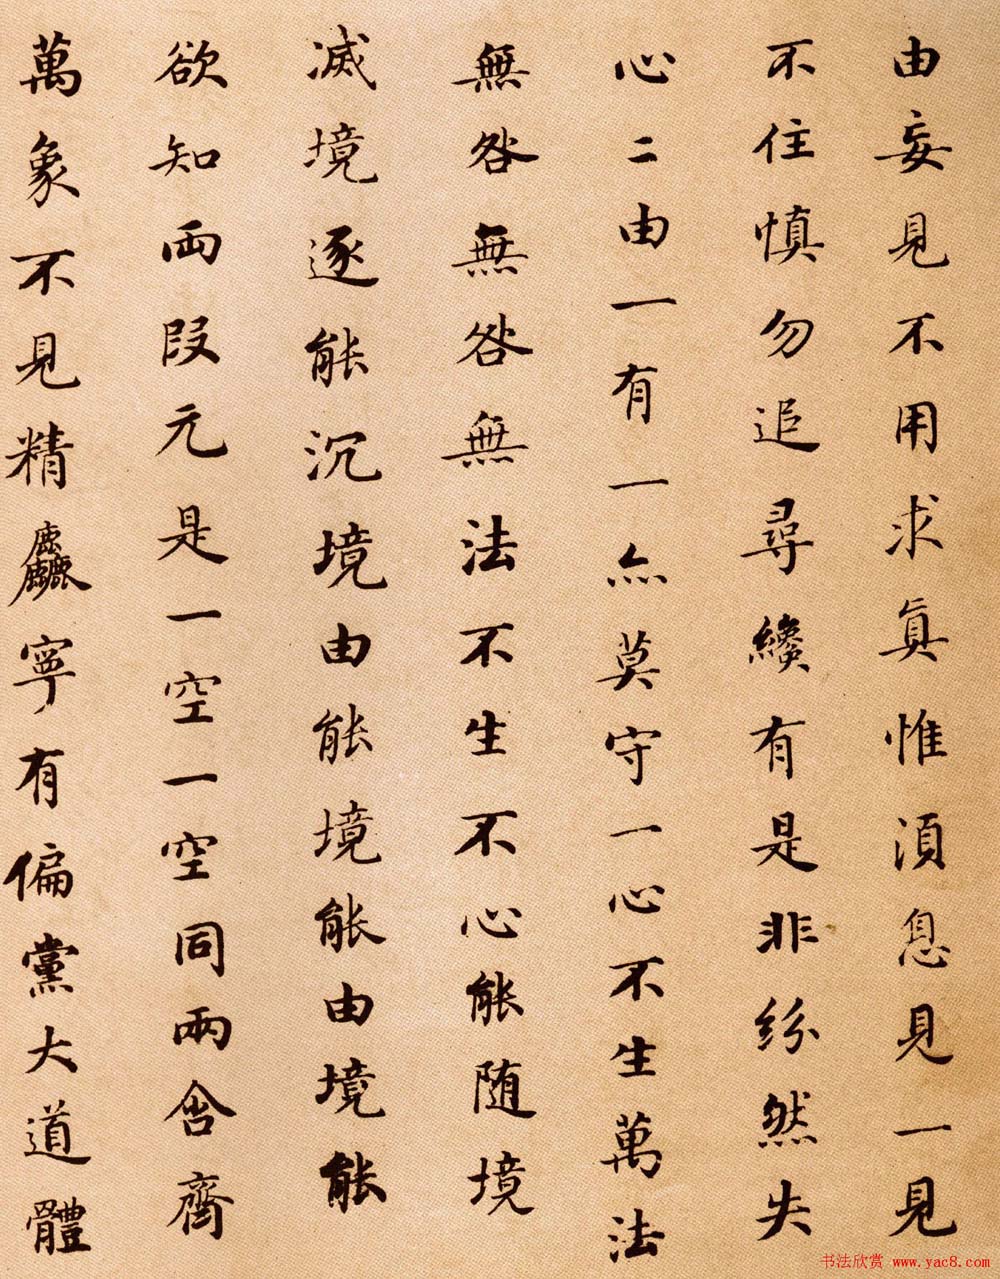 由妄見不用求眞惟湏息見一見
不住慎勿追尋纔有是非紛然失
心二由一有一亦莫守一心不生萬法
無咎無咎無法不生不心能随境
滅境逐能沉境由能境能由境能
欲知両段元是一空一空同兩含齊
萬象不見精麤寧有偏黨大道體
书法欣赏 www.yac8.com